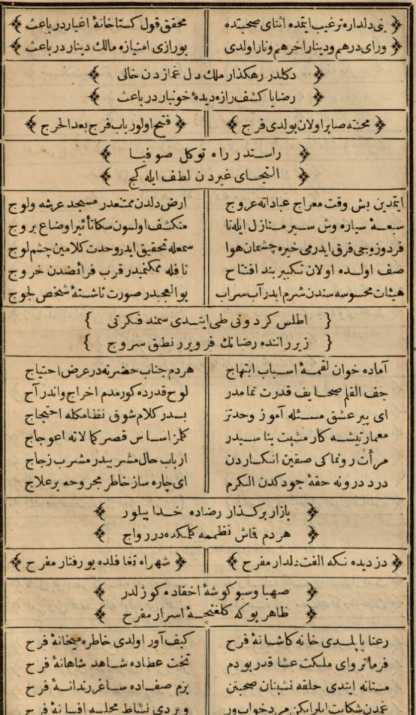 بنی دلداره ترغیب ایتمده اثنای صحبتده محقق قول کستاخانۀ اغیاردر باعث
ورای درهم و دینار آخر هم و نار اولدی بو رازی امتیازه مالك دیناردر باعث
دکلدر رهکذار ملك دل غمازدن خالی
رضایا کشف رازه دیدۀ خونباردر باعث
محنته صابر اولان بولدی فرج فتح اولور باب فرج بعد الحرج
راستدر راه توکل صوفیا
التجای غیردن لطف ایله کج
ایتمدین بش وقت معراج عباداته عروج ارض دلدن ممتنعدر مسجد عرشه ولوج
سبعۀ سیاره وش سیر منازل ایله تا منکشف اولسون سکا تأثیر اوضاع بروج
صف اولده اولان تکبیر بند افتتاح نافله قرب فرائضدن خروج
هیئات محسوسه سندن شرم ایدر آب سراب بو العجبدر صورت ناشستۀ شخص لجوج
اطلس کردونی طی ایتدی سمند فکرتی
زیر راننده رضانك فرویرر نطق سروج
آماده خوان لقمۀ اسباب ابتهاج هردم جناب حضرته در عرض احتیاج
جف القلم صحایف قدرت نما مدر لوح قدرده کورمدم اخراج واندراج
ای پیر عشق مسئله آموز وحدتز بدر کلام شوق نظامکله احتجاج
معمار تیشه کار مشیت بناسیدر کلمز اساس قصر کمالاته اعوجاج
مرآت رونماکی صقین انکساردن ارباب حال مشربیدر مشرب زجاج
درد درونه حقۀ جودکدن الکرم ای چاره ساز خاطر مجروحه بر علاج
بازار برکذار رضاده خدا بیلور
هردم قاش نظیمه کلمکده در رواج
دزدیده نکه الفت دلدار مفرح شهراه تغافلده بو رفتار مفرح
صهبا وسوکوشۀ اخفاده کوزلدر
ظاهر بو که کلغنجۀ اسرار مفرح
رعنا یاپلمدی خانه کاشانۀ فرح کیف آور اولدی خاطره میخانۀ فرح
فرمانروای ملکت عشاقدر بو دم تخت عطاده شاهد شاهانۀ فرح
مستانه ایتدی حلقه نشینان صحبتن بزم صفاده ساغر رندانۀ فرح
غمدن شکایت ایلر ایکن هر دخواب ور ویردی نشاط مجلسه افسانۀ فرح